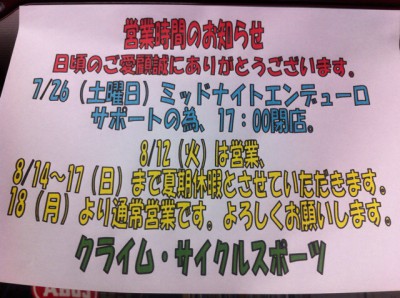 営業時間のお知らせ
日頃のご愛顧誠にありがとうございます。
7/26（土曜日）ミッドナイトエンデューロ
サポートの為、17：00閉店。
8/12（火）は営業、
8/14～17（日）まで夏期休暇とさせていただきます。
18（月）より通常営業です。よろしくお願いします。
クライム・サイクルスポーツ
ABUS